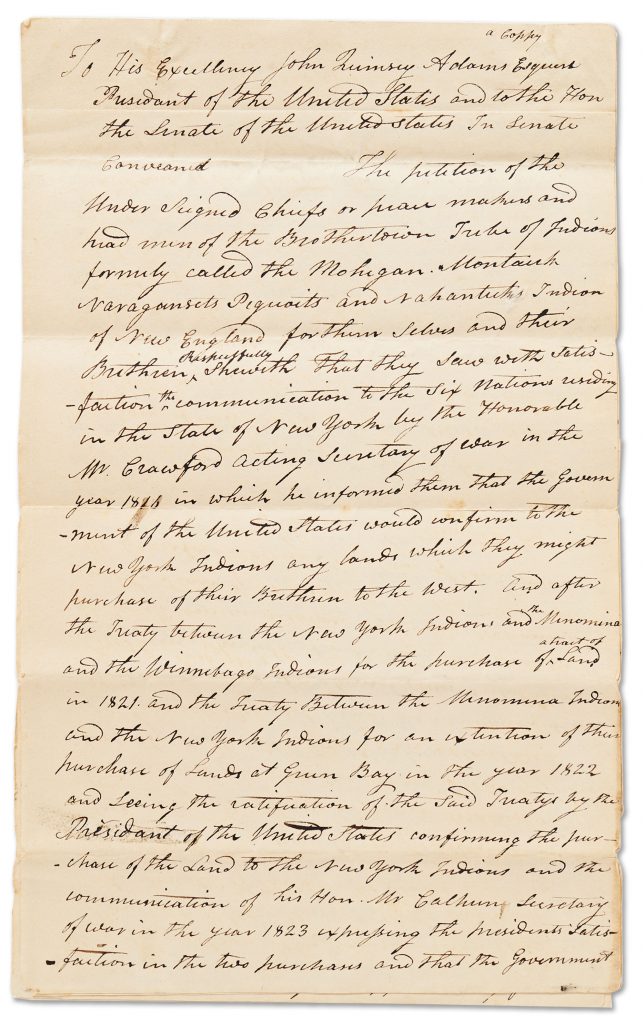 a Coppy
To His Excellency John Quinsey Adams Esquere
Presidant of the United States and to the Hon
the Senate of the United States In Senate
Conveaned The petition of the
Under Seigned Chiefs or peace makers and
head men of the Brothertown Tribe of Indions
formily called the Mohigan. Montauk
Naragansets Pequoits and Nahanticks Indion
of New England for them Selves and their
Respesfully
Brethren ^ Shewith That they Saw with Satis-
-faction the ^ communication to the Six Nations residing
in the State of New York by the Honorable
Mr. Crawford Acting Secretary of war in the
year 1816 in which he informed them that the Govern
-ment of the United States would confirm to the
New York Indions any lands which they might
purchase of their Brethren to the West. And after
the Treaty between the New York Indions and the Menomina
a tract of
and the Winnebago Indions for the purchase of ^ Land
in 1821. and the Treaty Between the Menomina Indions
and the New York Indions for an extention of their
purchase of Lands at Green Bay in the year 1822
and Seeing the ratification of the Said Treatys by the
Presidant of the United States confirming the pur-
-chase of the Land to the New York Indions and the
communication of his Hon. Mr Calhun Secretary
of war in the year 1823 expressing the presidents Satis-
-faction in the two purchases and that the Government